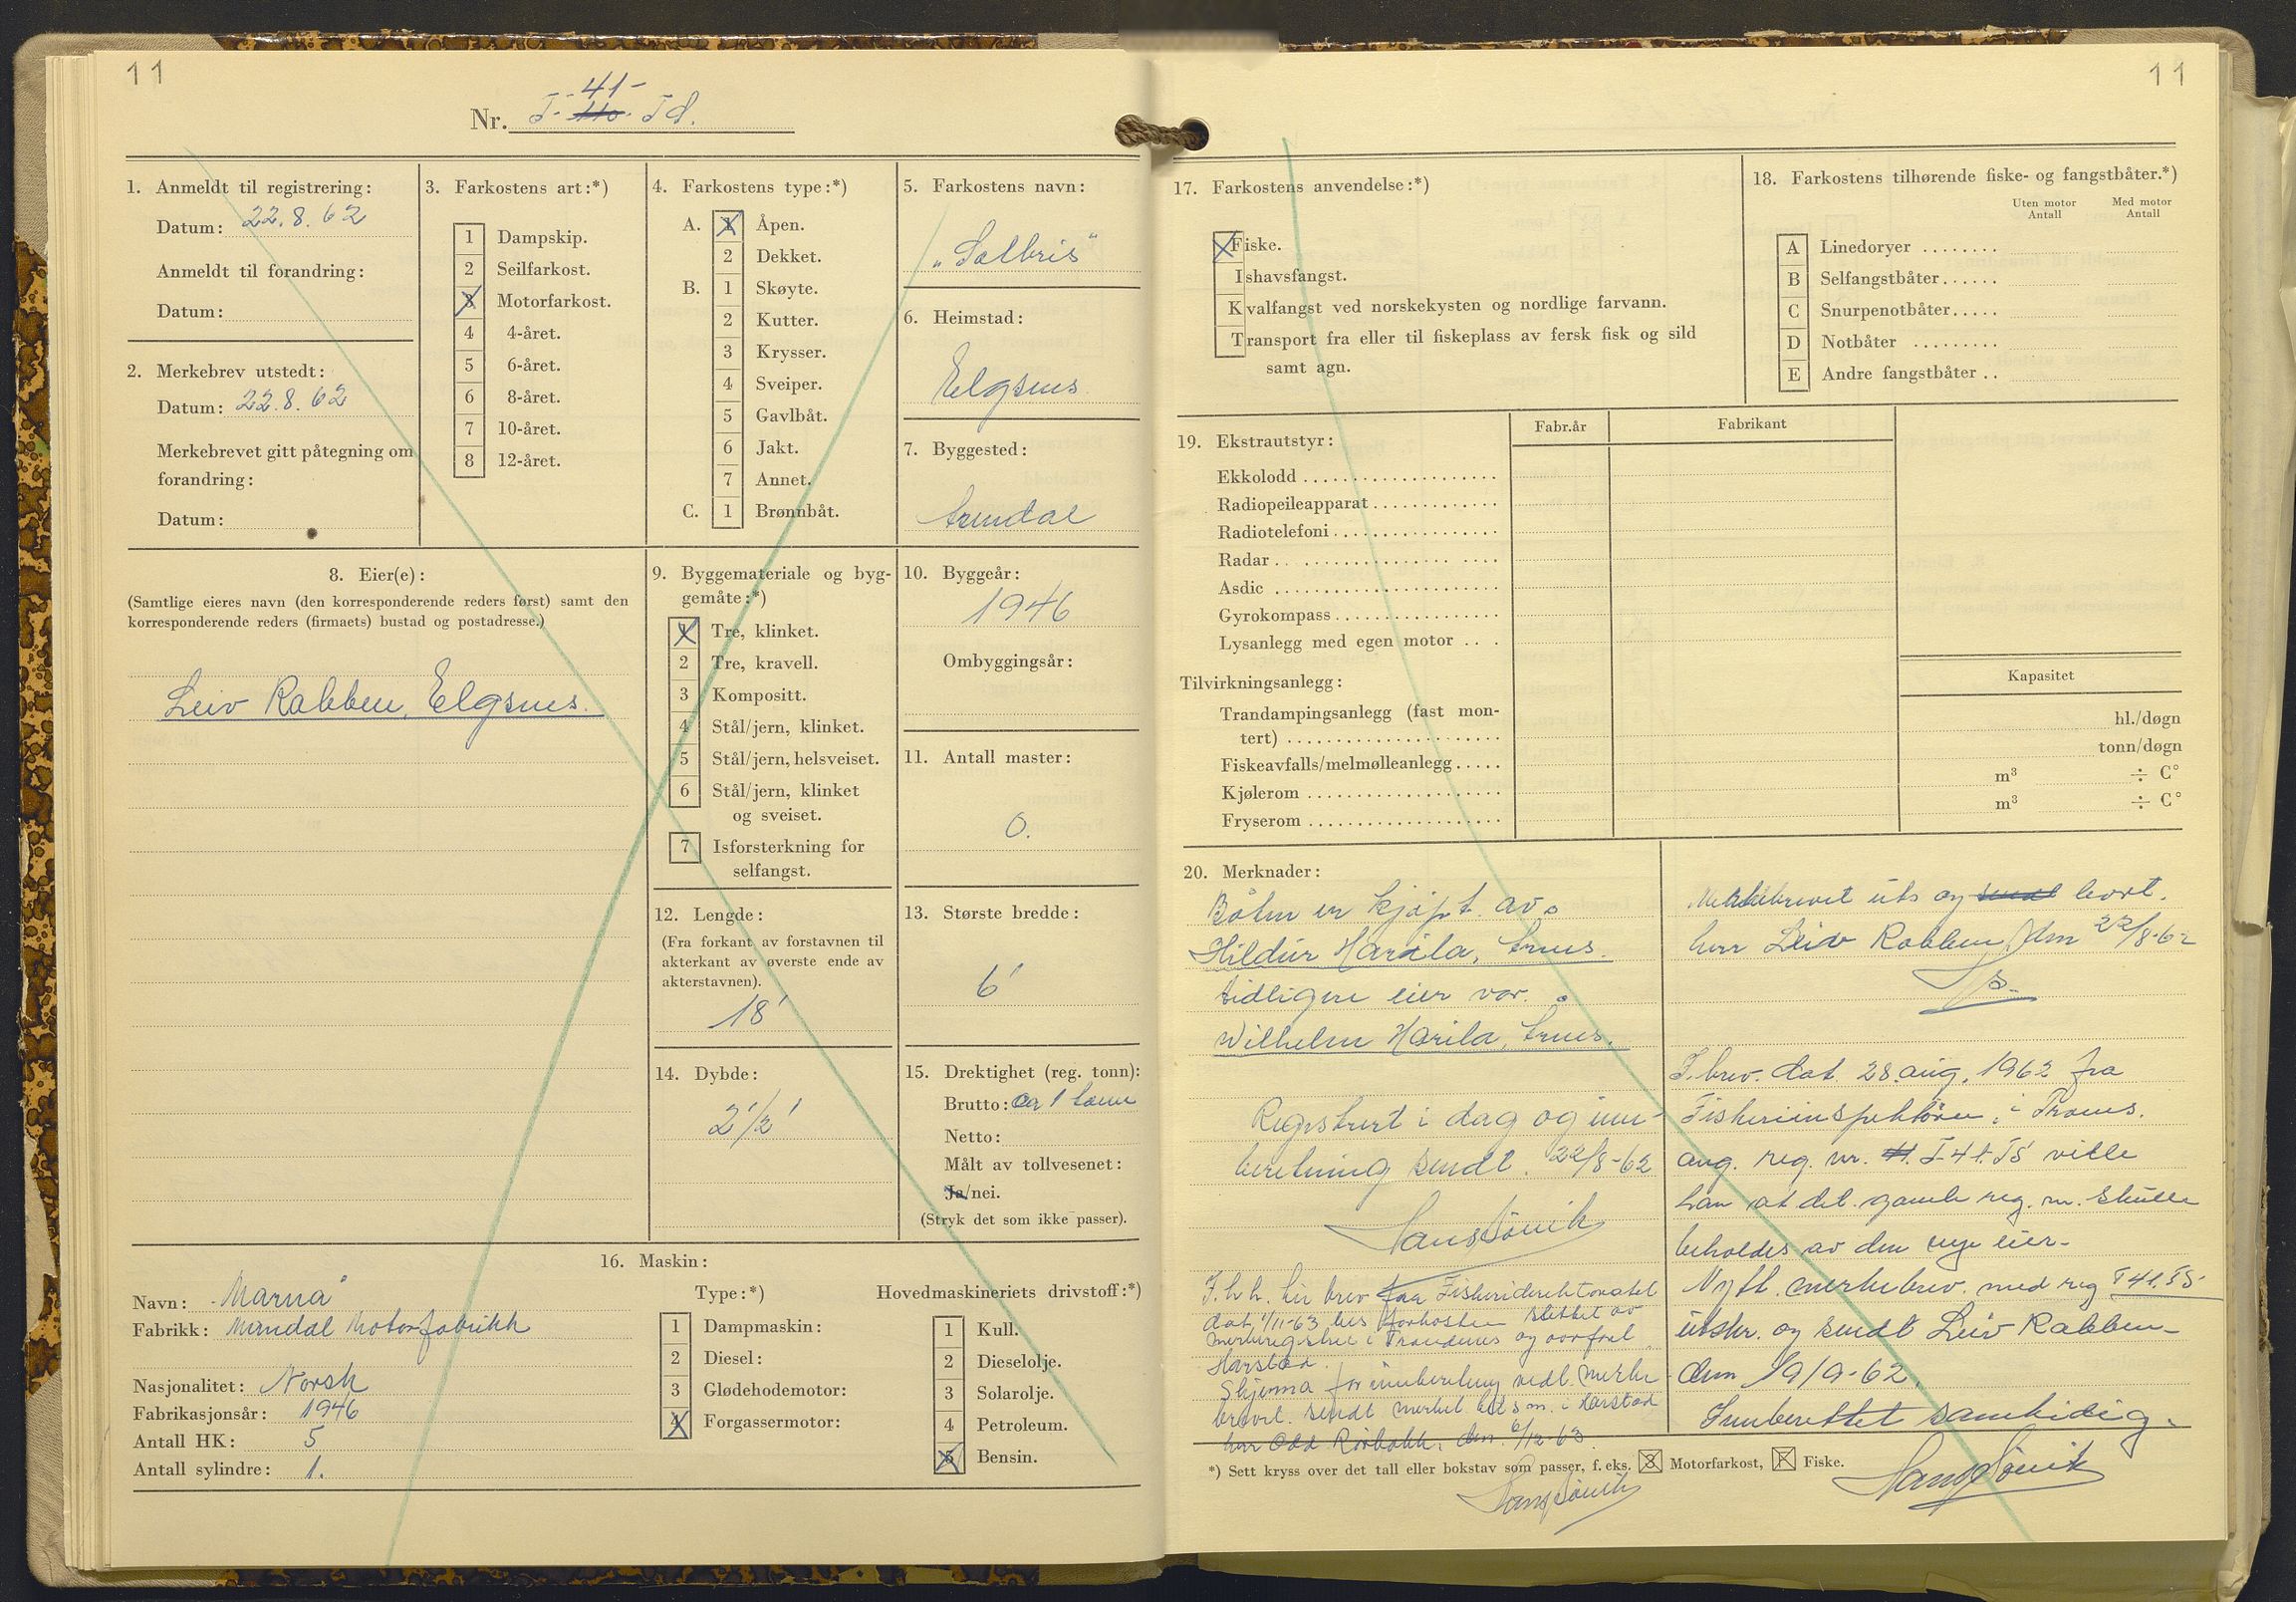 11
Nr. T- 110 - Td.
-41-
1. Anmeldt til registrering:
Datum: 22.8.62
Anmeldt til forandring:
Datum:
2. Merkebrev utstedt:
Datum: 22.8.62
Merkebrevet gitt påtegning om
forandring:
Datum:
3. Farkostens art:*)
1 Dampskip.
2 Seilfarkost.
3 Motorfarkost.
4 4-året.
5 6-året.
6 8-året.
7 10-året.
8 12-året.
4. Farkostens type:*)
A. 1 Åpen.
2 Dekket.
B. 1 Skøyte.
2 Kutter.
3 Krysser.
4 Sveiper.
5 Gavlbåt.
6 Jakt.
7 Annet.
C. 1 Brønnbåt.
5. Farkostens navn:
"Solbris"
6. Heimstad:
Elgsnes
7. Byggested:
Arendal
8. Eier(e):
(Samtlige eieres navn (den korresponderende reders først) samt den
korresponderende reders (firmaets) bustad og postadresse.)
Leiv Rabben, Elgsnes.
9. Byggemateriale og byg-
gemåte:*)
1 Tre, klinket.
2 Tre, kravell.
3 Kompositt.
4 Stål/jern, klinket.
5 Stål/jern, helsveiset.
6 Stål/jern, klinket
og sveiset.
7 Isforsterkning for
selfangst.
10. Byggeår:
1946
Ombyggingsår:
11. Antall master:
0.
12. Lengde:
(Fra forkant av forstavnen til
akterkant av øverste ende av
akterstavnen).
18'
13. Største bredde:
6'
14. Dybde:
2 1/2'
15. Drektighet (reg. tonn):
Brutto: ca 1 tonn
Netto:
Målt av tollvesenet:
Ja/nei.
(Stryk det som ikke passer).
16. Maskin:
Navn: Marna
Fabrikk: Mandal Motorfabrikk
Nasjonalitet: Norsk
Fabrikasjonsår: 1946
Antall HK: 5
Antall sylindre: 1.
Type:*)
1 Dampmaskin:
2 Diesel:
3 Glødehodemotor:
4 Forgassermotor:
Hovedmaskineriets drivstoff:*)
1 Kull.
2 Dieselolje.
3 Solarolje.
4 Petroleum.
5 Bensin.
11
17. Farkostens anvendelse:*)
Fiske.
Ishavsfangst.
Kvalfangst ved norskekysten og nordlige farvann.
Transport fra eller til fiskeplass av fersk fisk og sild
samt agn.
18. Farkostens tilhørende fiske- og fangstbåter.*)
Uten motor Antall
Med motor Antall
A Linedoryer ........
B Selfangstbåter......
C Snurpenotbåter.....
D Notbåter .........
E Andre fangstbåter ..
19. Ekstrautstyr:
Fabr.år
Fabrikant
Ekkolodd
Radiopeileapparat
Radiotelefoni
Radar
Asdic
Gyrokompass
Lysanlegg med egen motor
Tilvirkningsanlegg:
Kapasitet
Trandampingsanlegg (fast mon-
tert) hl./døgn
Fiskeavfalls/melmølleanlegg tonn/døgn
Kjølerom m³ ÷ C°
Fryserom m³ ÷ C°
20. Merknader:
Båten er kjøpt av
Hildur Harila,
tidligere eier var.
Wilhelm Harila,
Registrert i dag og inn-
beretning sendt. 22/8-62
Hans Sørvik
I.h.h. til brev fra Fiskeridirektoratet
dat. 1/11-63 bes farkosten slettet av
merkeregistret i Trondenes og overført
Harstad.
Skjema for innberetning vedl. merke-
brevet sendt merkel. tilsm. i Harstad
herr Odd Rørbakk. den. 6/12-63.
Hans Sørvik
Merkebrevet uts og sendt levert.
herr Leiv Rabben den 22/8-62
I. brev. dat. 28. aug. 1962 fra
Fiskeriinspektøren, i Troms.
ang. reg. nr. T-41.TS ville
han at det gamle reg. nr. skulle
beholdes av den nye eier-
Nytt. merkebrev. med reg T41.TS
utskr. og sendt Leiv Rabben-
den 19/9-62.
Innberettet samtidig.
Hans Sørvik
*) Sett kryss over det tall eller bokstav som passer, f. eks. 3 Motorfarkost, F Fiske.